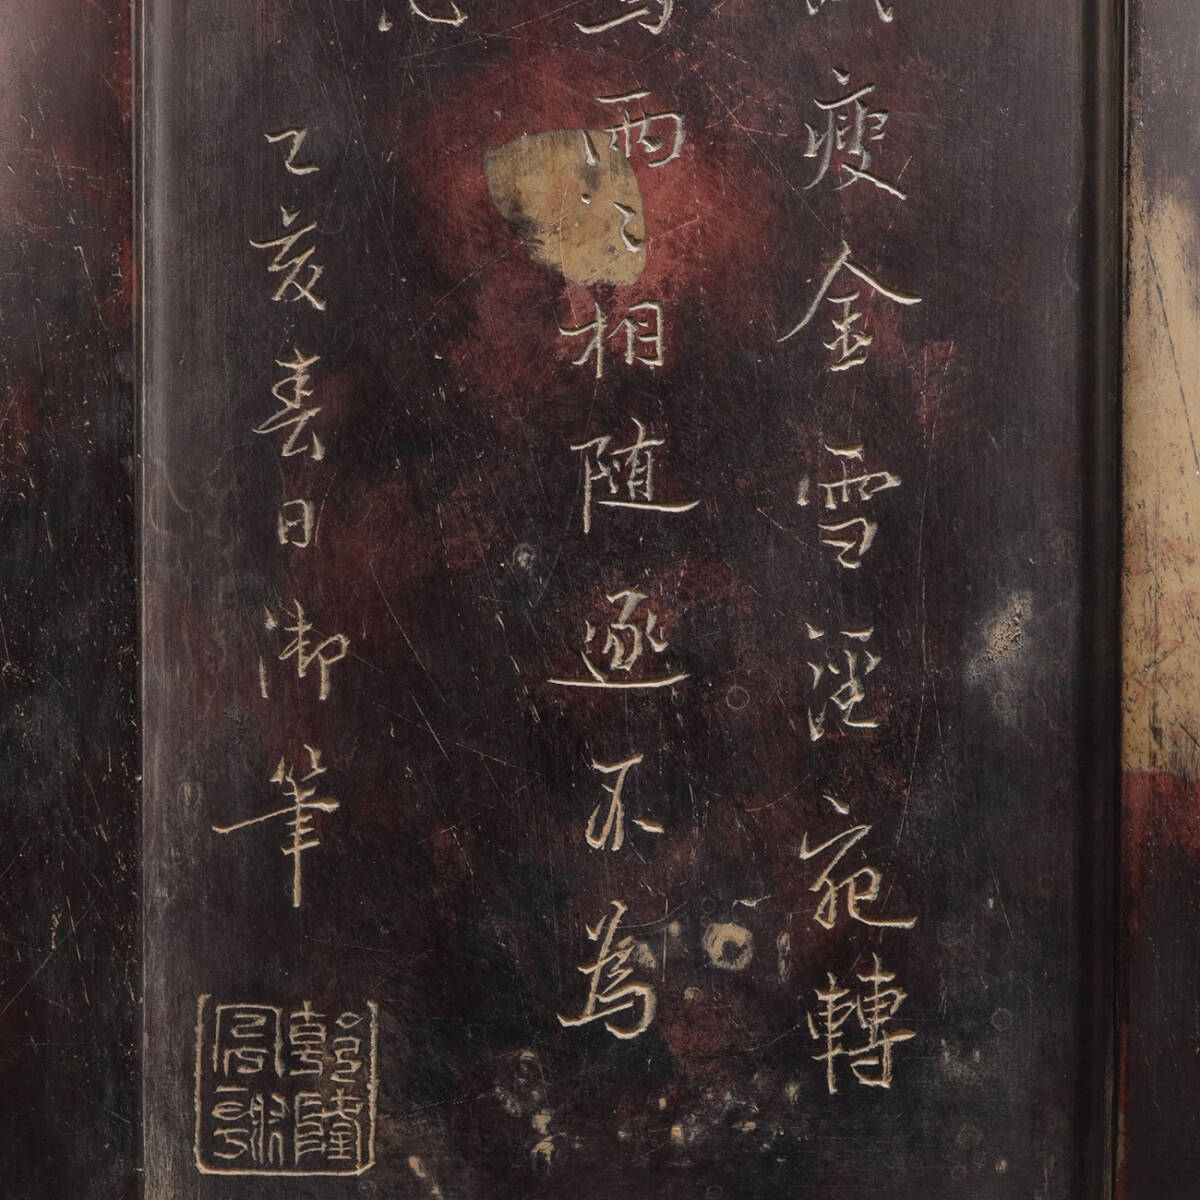 瘦金雪淫宛轉
兩〻相隨逐不為
乙亥春日御筆
乾隆